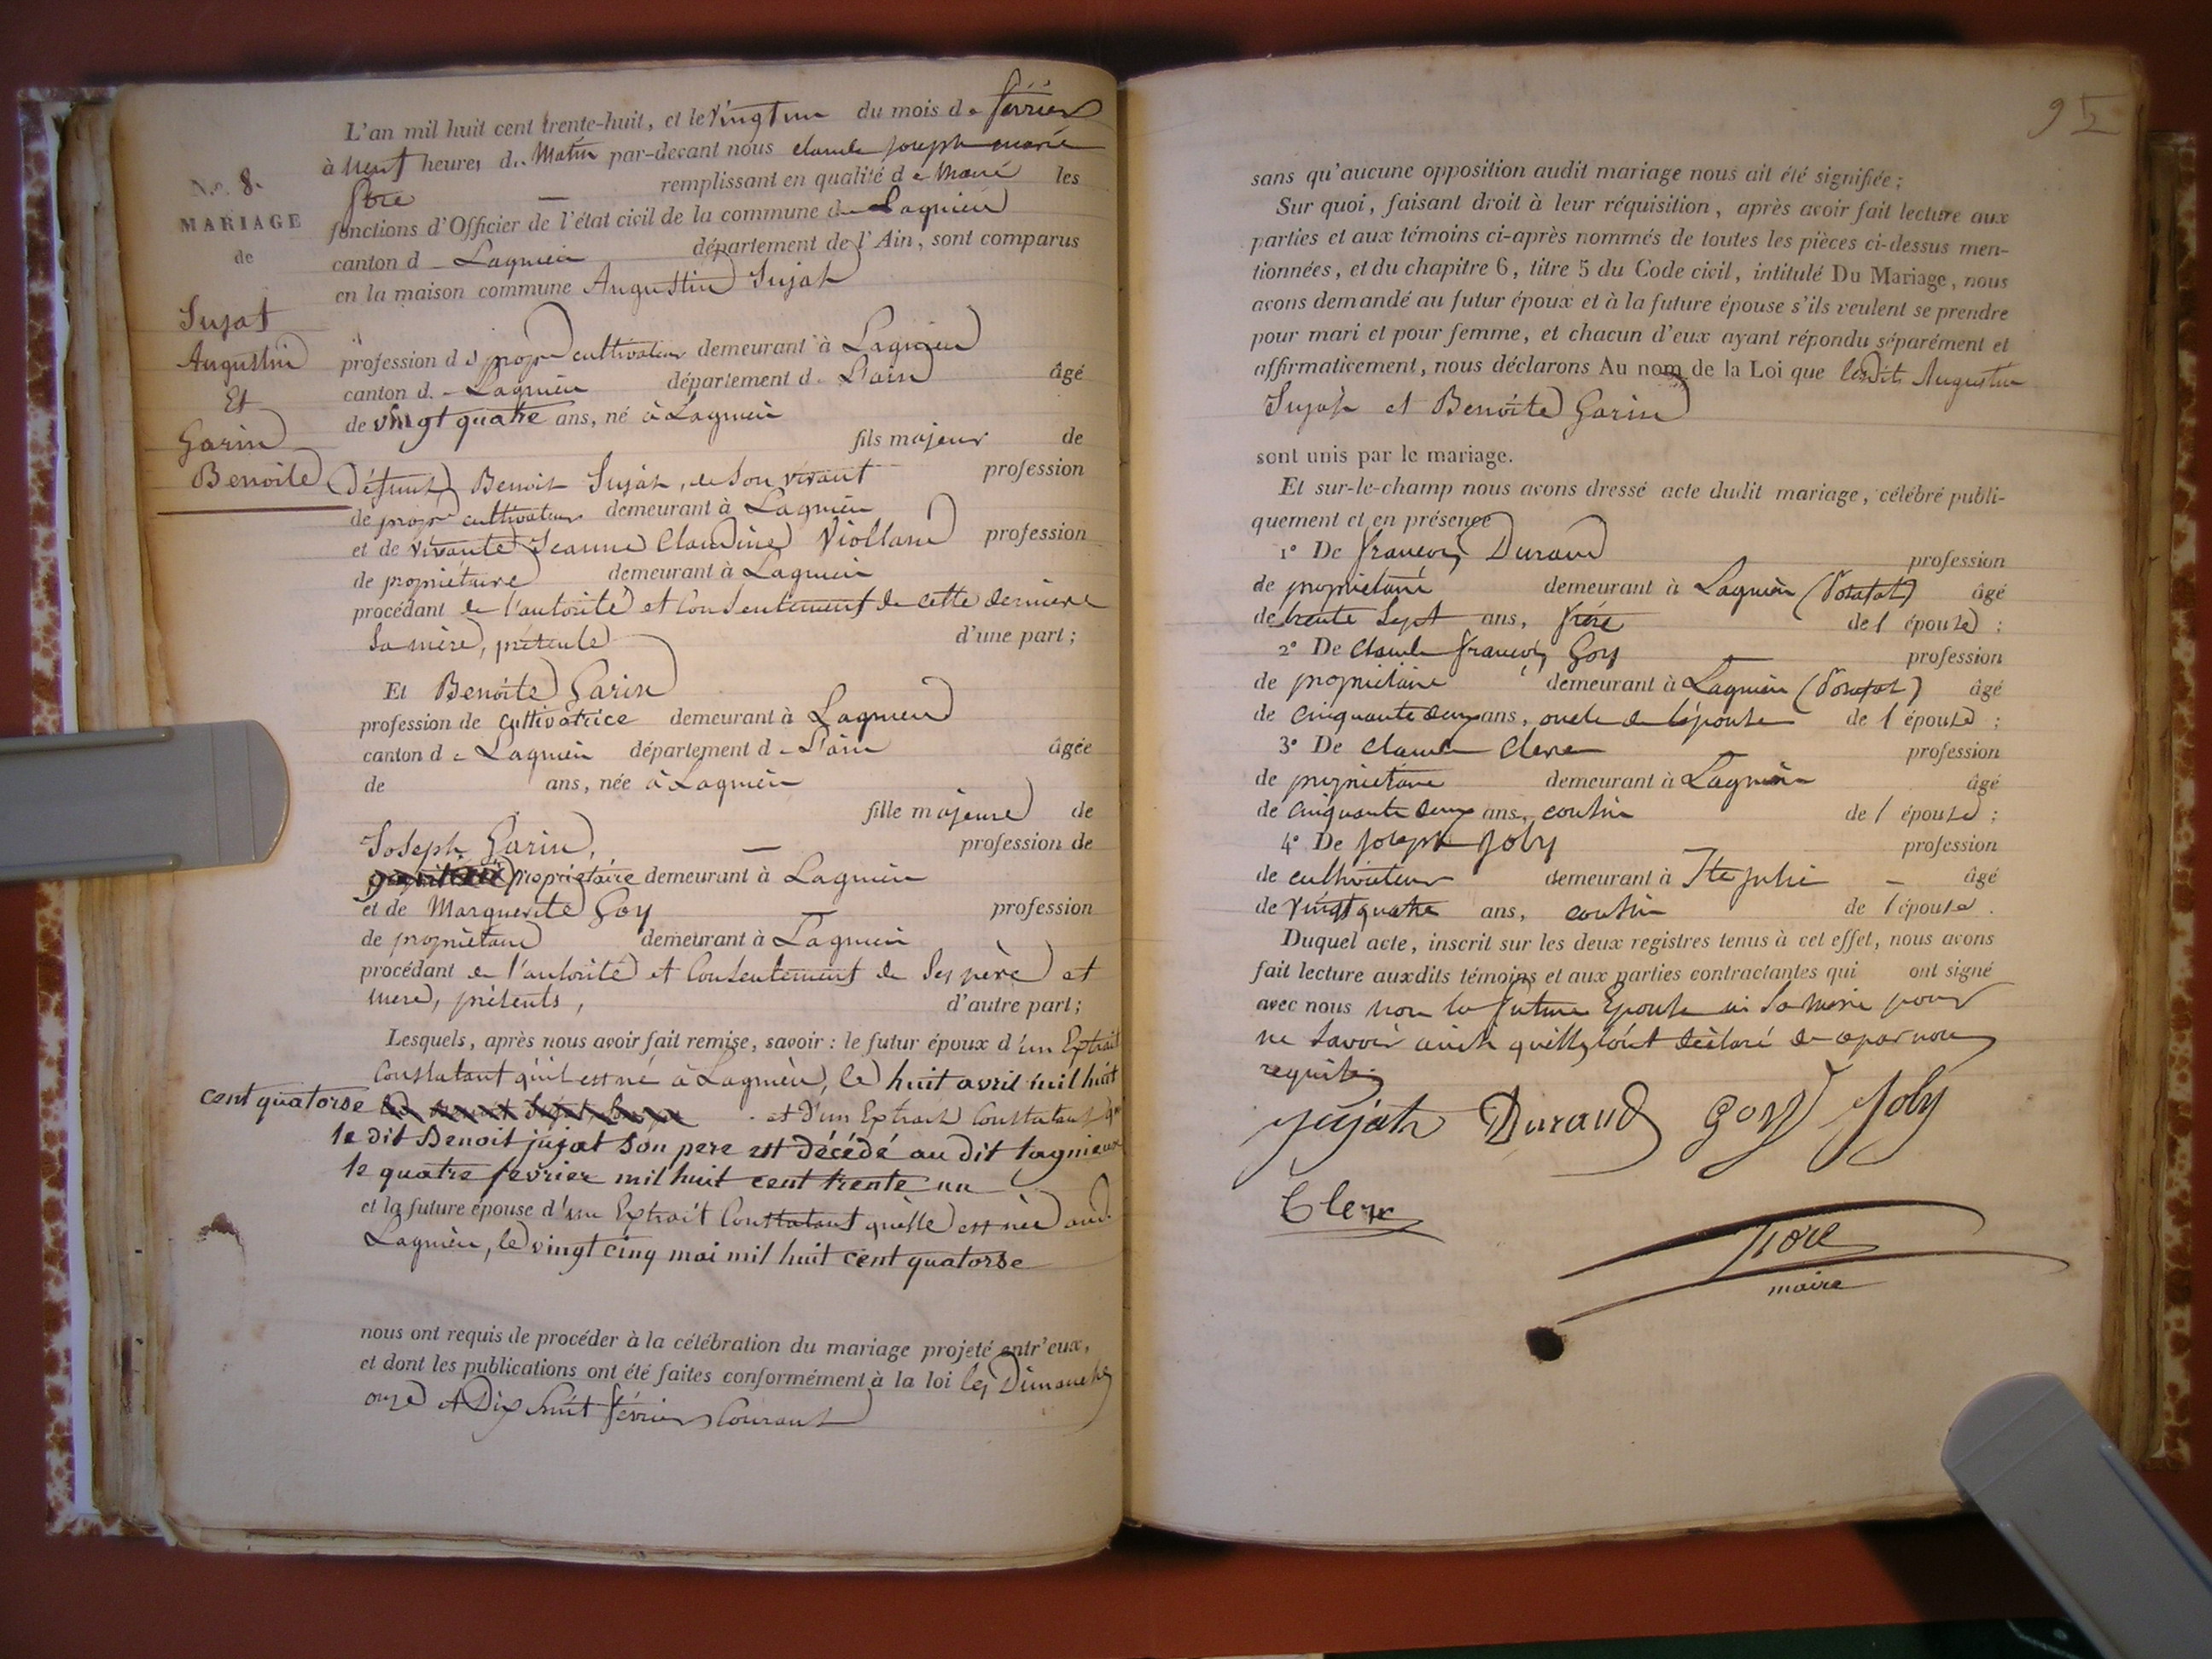 N.º 8.
MARIAGE
de
Sujat
Augustin
Et
Garin
Benoite
L'an mil huit cent trente-huit, et le vingt un du mois de février
à neuf heures du Matin par-devant nous claude joseph marie
remplissant en qualité de Maire les
fonctions d'Officier de l'état civil de la commune de Lagnieu
canton d Lagnieu département de l'Ain, sont comparus
en la maison commune Augustin Sujat
profession de propre cultivateur demeurant à Lagnieu
canton de Lagnieu département de L'ain âgé
de vingt quatre ans, né à Lagnieu
fils majeur de
défunt Benoit Sujat, de son vivant profession
de propre cultivateur demeurant à Lagnieu
et de vivante Jeanne Claudine Violland profession
de propriétaire demeurant à Lagnieu
procédant de l'autorité et Consentement de cette derniere
sa mère, présente d'une part;
Et Benoite Garin
profession de cultivatrice demeurant à Lagnieu
canton de Lagnieu département de L'ain âgée
de ans, née à Lagnieu
fille majeure de
Joseph Garin, profession de
propriétaire demeurant à Lagnieu
et de Marguerite Goy profession
de propriétaire demeurant à Lagnieu
procédant de l'autorité et Consentement de ses père et
mere, présents, d'autre part;
Lesquels, après nous avoir fait remise, savoir : le futur époux d'un Extrait
Constatant qu'il est né à Lagnieu, le huit avril mil huit
cent quatorse et d'un Extrait Constatant que
le dit Benoit jujat son pere est décédé au dit lagnieux
le quatre fevrier mil huit cent trente un
et la future épouse d'un Extrait Constatant qu'elle est née aud.
Lagnieu, le vingt cinq mai mil huit cent quatorse
nous ont requis de procéder à la célébration du mariage projeté entr'eux,
et dont les publications ont été faites conformément à la loi les Dimanches
onze et Dix huit février Courant
95
sans qu'aucune opposition audit mariage nous ait été signifiée;
Sur quoi, faisant droit à leur réquisition, après avoir fait lecture aux
parties et aux témoins ci-après nommés de toutes les pièces ci-dessus men-
tionnées, et du chapitre 6, titre 5 du Code civil, intitulé Du Mariage, nous
avons demandé au futur époux et à la future épouse s'ils veulent se prendre
pour mari et pour femme, et chacun d'eux ayant répondu séparément et
affirmativement, nous déclarons Au nom de la Loi que lesdits Augustin
Sujat et Benoite Garin
sont unis par le mariage.
Et sur-le-champ nous avons dressé acte dudit mariage, célébré publi-
quement et en présence
1º De françois Durand profession
de propriétaire demeurant à Lagnieu (Posafol) âgé
de trente sept ans, frère de l épouse;
2º De Claude françois Goy profession
de propriétaire demeurant à Lagnieu (Posafol) âgé
de cinquante deux ans, oncle de l'épouse de l épouse;
3º De Claude Clerc profession
de propriétaire demeurant à Lagnieu âgé
de cinquante deux ans, cousin de l épouse;
4º De joseph joly profession
de cultivateur demeurant à Ste julie âgé
de vingt quatre ans, cousin de l épouse.
Duquel acte, inscrit sur les deux registres tenus à cet effet, nous avons
fait lecture auxdits témoins et aux parties contractantes qui ont signé
avec nous non la future Epouse ni sa mère pour
ne savoir ainsi qu'elles l'ont déclaré de ce par nous
requises
jujat Durand goy joly
Clerc
maire